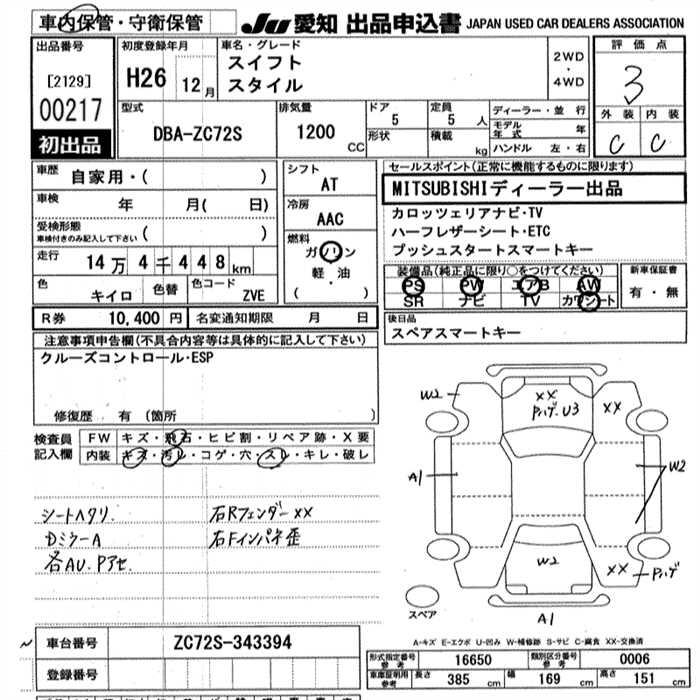 車内保管・守衛保管
JU 愛知 出品申込書 JAPAN USED CAR DEALERS ASSOCIATION
出品番号
[2129]
00217
初出品
初度登録年月
H26 12月
車名・グレード
スイフト
スタイル
2WD
・
4WD
評価点
3
外装 内装
C C
型式
DBA-ZC72S
排気量
1200 CC
ドア 5
形状
定員 5 人
積載 kg
ディーラー・並行
モデル年式 年
ハンドル 左・右
車歴
自家用・( )
車検
年 月( 日)
受検形態
車検付きのみ記入して下さい ( )
走行
14万4千448km
色
キイロ
色替
色コード
ZVE
シフト
AT
冷房
AAC
燃料
ガソリン
軽・油
( )
R券 10,400円 名変通知期限 月 日
セールスポイント(正常に機能するものに限ります)
MITSUBISHIディーラー出品
カロッツェリアナビ・TV
ハーフレザーシート・ETC
プッシュスタートスマートキー
装備品(純正品に限り○をつけてください)
PS PW エアB AW
SR ナビ TV カワシート
新車保証書
有・無
後日品
スペアスマートキー
注意事項申告欄(不具合内容等は具体的に記入して下さい)
クルーズコントロール・ESP
修復歴 有 (箇所 )
検査員
記入欄
FW キズ・飛石・ヒビ割・リペア跡・X要
内装 キズ・汚レ・コゲ・穴・スレ・キレ・破レ
シートヘタリ.
DミラーA
各AU.Pアセ.
右Rフェンダー××
右Fインパネ歪
W2
××
Pハゲ U3
××
A1
W2
W2
××
Pハゲ
A1
スペア
A-キズ E-エクボ U-凹み W-補修跡 S-サビ C-腐食 XX-交換済
車台番号 ZC72S-343394
登録番号
形式指定番号 参考 16650
類別区分番号 参考 0006
車庫証明用 参考 長さ 385 cm 幅 169 cm 高さ 151 cm